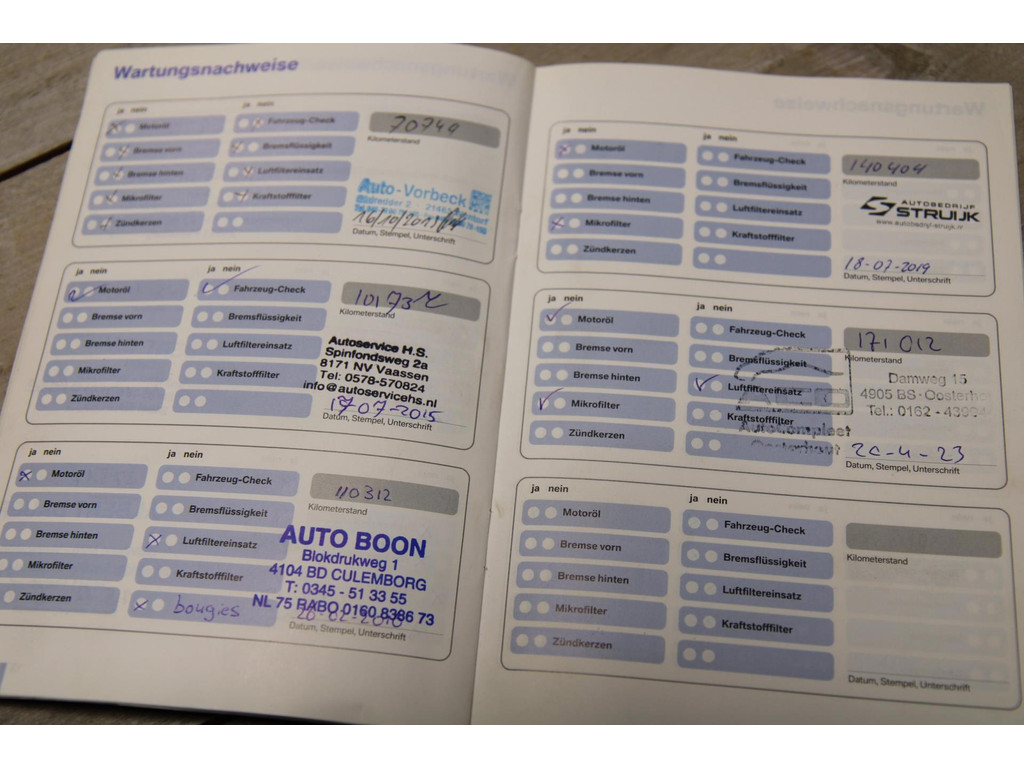 Wartungsnachweise
ja nein
ja nein
Motoröl
Fahrzeug-Check
70749
Kilometerstand
Bremse vorn
Bremsflüssigkeit
Bremse hinten
Luftfiltereinsatz
Mikrofilter
Kraftstofffilter
Auto-Vorbeck
Zündkerzen
Datum, Stempel, Unterschrift
ja nein
ja nein
Motoröl
Fahrzeug-Check
Kilometerstand
Bremse vorn
Bremsflüssigkeit
Bremse hinten
Luftfiltereinsatz
Mikrofilter
Kraftstofffilter
Zündkerzen
Autoservice H.S.
Spinfondsweg 2a
8171 NV Vaassen
Tel: 0578-570824
info@autoservicehs.nl
17-07-2015
Datum, Stempel, Unterschrift
ja nein
ja nein
Motoröl
Fahrzeug-Check
110312
Kilometerstand
Bremse vorn
Bremsflüssigkeit
Bremse hinten
Luftfiltereinsatz
Mikrofilter
Kraftstofffilter
Zündkerzen
bougies
AUTO BOON
Blokdrukweg 1
4104 BD CULEMBORG
T: 0345 - 51 33 55
NL 75 RABO 0160 8386 73
Datum, Stempel, Unterschrift
ja nein
ja nein
Motoröl
Fahrzeug-Check
140404
Kilometerstand
Bremse vorn
Bremsflüssigkeit
Bremse hinten
Luftfiltereinsatz
Mikrofilter
Kraftstofffilter
Zündkerzen
AUTOBEDRIJF
STRUIJK
www.autobedrijf-struijk.nl
18-07-2019
Datum, Stempel, Unterschrift
ja nein
ja nein
Motoröl
Fahrzeug-Check
171012
Kilometerstand
Bremse vorn
Bremsflüssigkeit
Bremse hinten
Luftfiltereinsatz
Mikrofilter
Kraftstofffilter
Zündkerzen
Damweg 15
4905 BS - Oosterho
Tel.: 0162 - 43994
AutoCompleet
Oosterhout
20-4-23
Datum, Stempel, Unterschrift
ja nein
ja nein
Motoröl
Fahrzeug-Check
Kilometerstand
Bremse vorn
Bremsflüssigkeit
Bremse hinten
Luftfiltereinsatz
Mikrofilter
Kraftstofffilter
Zündkerzen
Datum, Stempel, Unterschrift